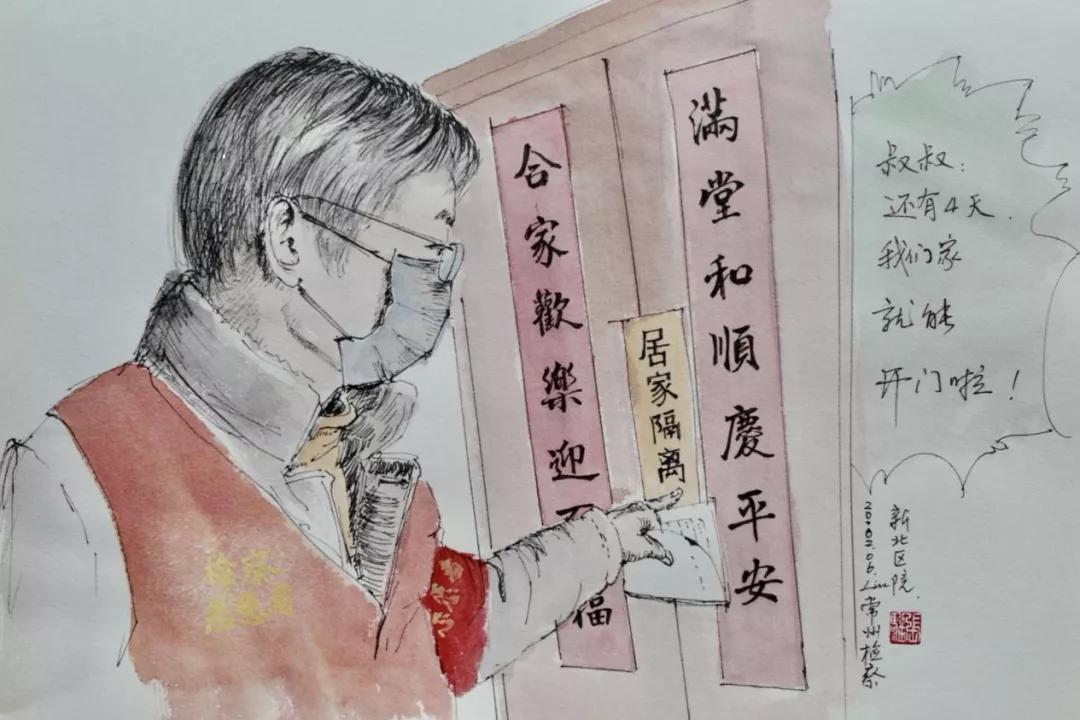 滿堂和順慶平安
合家歡樂迎
福
居家隔离
叔叔：
还有4天．
我们家
就能
开门啦！
新北区院．
常州检察